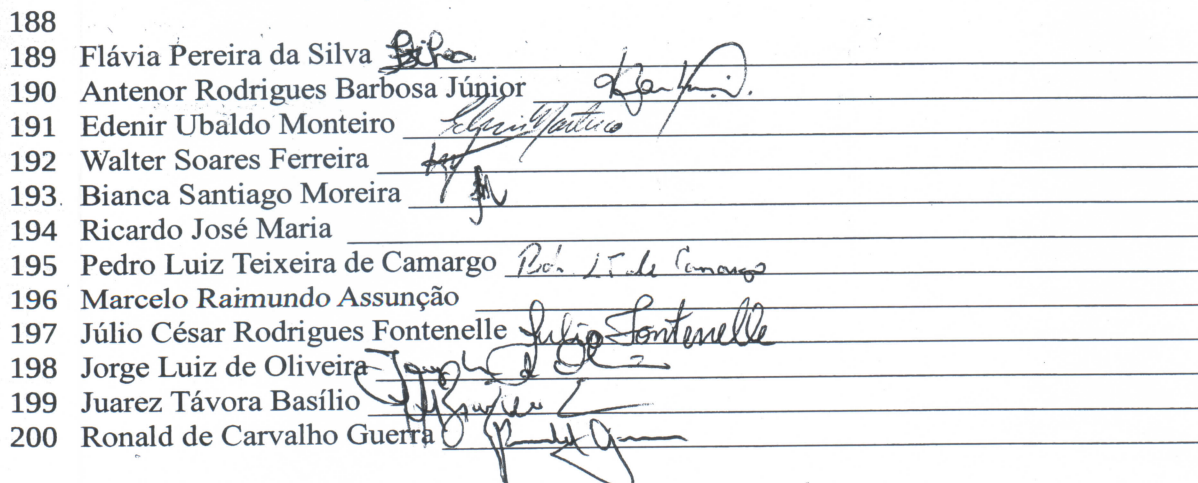 188
189 Flávia Pereira da Silva
190 Antenor Rodrigues Barbosa Júnior
191 Edenir Ubaldo Monteiro
192 Walter Soares Ferreira
193 Bianca Santiago Moreira
194 Ricardo José Maria
195 Pedro Luiz Teixeira de Camargo
196 Marcelo Raimundo Assunção
197 Júlio César Rodrigues Fontenelle Julio Fontenelle
198 Jorge Luiz de Oliveira
199 Juarez Távora Basílio
200 Ronald de Carvalho Guerra